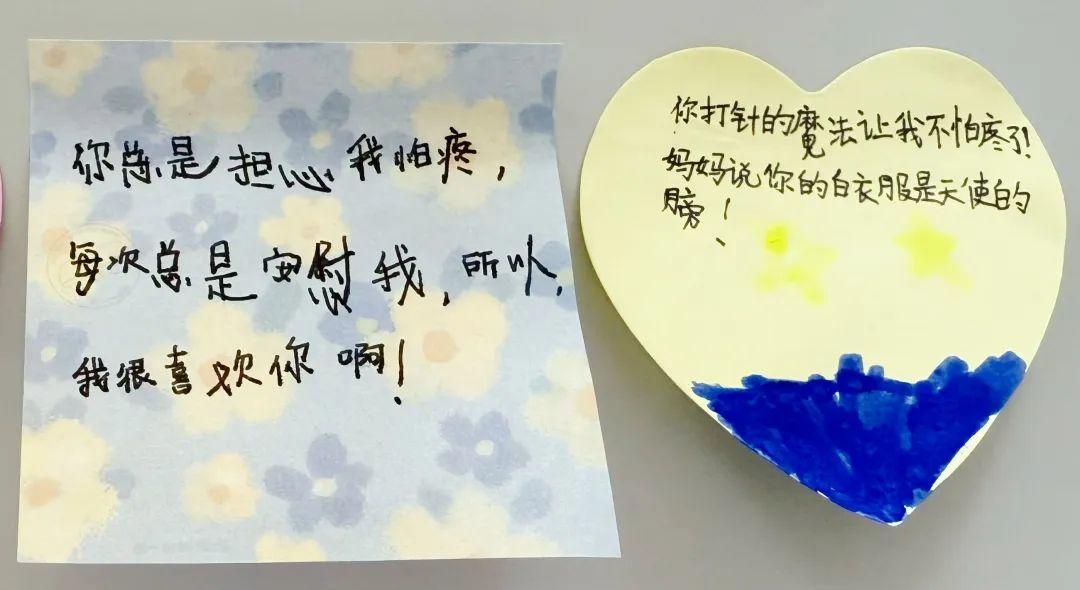 你总是担心我怕疼，
每次总是安慰我，所以，
我很喜欢你啊！
你打针的魔法让我不怕疼了！
妈妈说你的白衣服是天使的
膀！